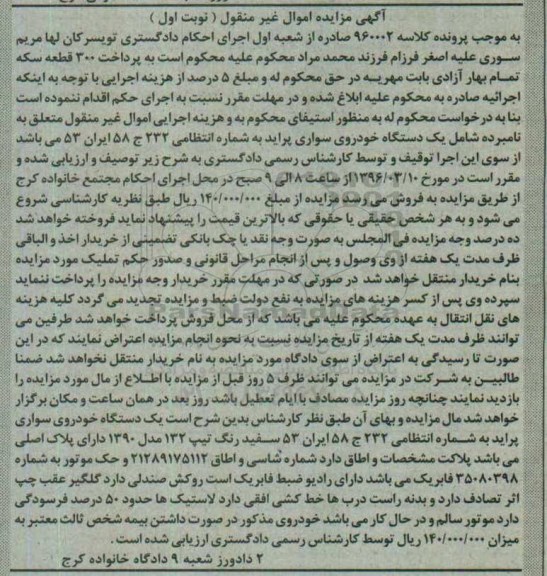 آگهی مزایده اموال غیر منقول ( نوبت اول )
به موجب پرونده کلاسه ۹۶۰۰۰۲ صادره از شعبه اول اجرای احکام دادگستری تویسرکان لها مریم
سوری علیه اصغر فرزام فرزند محمد مراد محکوم علیه محکوم است به پرداخت ۳۰۰ قطعه سکه
تمام بهار آزادی بابت مهریه در حق محکوم له و مبلغ ۵ درصد از هزینه اجرایی با توجه به اینکه
اجرائیه صادره به محکوم علیه ابلاغ شده و در مهلت مقرر نسبت به اجرای حکم اقدام ننموده است
بنا به درخواست محکوم له به منظور استیفای محکوم به و هزینه اجرایی اموال غیر منقول متعلق به
نامبرده شامل یک دستگاه خودروی سواری پراید به شماره انتظامی ۲۳۲ ج ۵۸ ایران ۵۳ می باشد
از سوی این اجرا توقیف و توسط کارشناس رسمی دادگستری به شرح زیر توصیف و ارزیابی شده و
مقرر است در مورخ ۱۳۹۶/۰۳/۱۰ از ساعت ۸ الی ۹ صبح در محل اجرای احکام مجتمع خانواده کرج
از طریق مزایده به فروش می رسد مزایده از مبلغ ۱۴۰/۰۰۰/۰۰۰ ریال طبق نظریه کارشناسی شروع
می شود و به هر شخص حقیقی یا حقوقی که بالاترین قیمت را پیشنهاد نماید فروخته خواهد شد
ده درصد وجه مزایده فی المجلس به صورت وجه نقد یا چک بانکی تضمینی از خریدار اخذ و الباقی
ظرف مدت یک هفته از وی وصول و پس از انجام مراحل قانونی و صدور حکم تملیک مورد مزایده
بنام خریدار منتقل خواهد شد در صورتی که در مهلت مقرر خریدار وجه مزایده را پرداخت ننماید
سپرده وی پس از کسر هزینه های مزایده به نفع دولت ضبط و مزایده تجدید می گردد کلیه هزینه
های نقل انتقال به عهده محکوم علیه می باشد که از محل فروش پرداخت خواهد شد طرفین می
توانند ظرف مدت یک هفته از تاریخ مزایده نسبت به نحوه انجام مزایده اعتراض نمایند که در این
صورت تا رسیدگی به اعتراض از سوی دادگاه مورد مزایده به نام خریدار منتقل نخواهد شد ضمنا
طالبین به شرکت در مزایده می توانند ظرف ۵ روز قبل از مزایده با اطلاع از مال مورد مزایده را
بازدید نمایند چنانچه روز مزایده مصادف با ایام تعطیل باشد روز بعد در همان ساعت و مکان برگزار
خواهد شد مال مزایده و بهای آن طبق نظر کارشناس بدین شرح است یک دستگاه خودروی سواری
پراید به شماره انتظامی ۲۳۲ ج ۵۸ ایران ۵۳ سفید رنگ تیپ ۱۳۲ مدل ۱۳۹۰ دارای پلاک اصلی
می باشد پلاکت مشخصات و اطاق دارد شماره شاسی و اطاق ۲۱۲۸۹۱۷۵۱۱۲ و حک موتور به شماره
۳۵۰۸۰۳۹۸ فابریک می باشد دارای رادیو ضبط فابریک است روکش صندلی دارد گلگیر عقب چپ
اثر تصادف دارد و بدنه راست درب ها خط کشی افقی دارد لاستیک ها حدود ۵۰ درصد فرسودگی
دارد موتور سالم و در حال کار می باشد خودروی مذکور در صورت داشتن بیمه شخص ثالث معتبر به
میزان ۱۴۰/۰۰۰/۰۰۰ ریال توسط کارشناس رسمی دادگستری ارزیابی شده است .
۲ دادورز شعبه ۹ دادگاه خانواده کرج